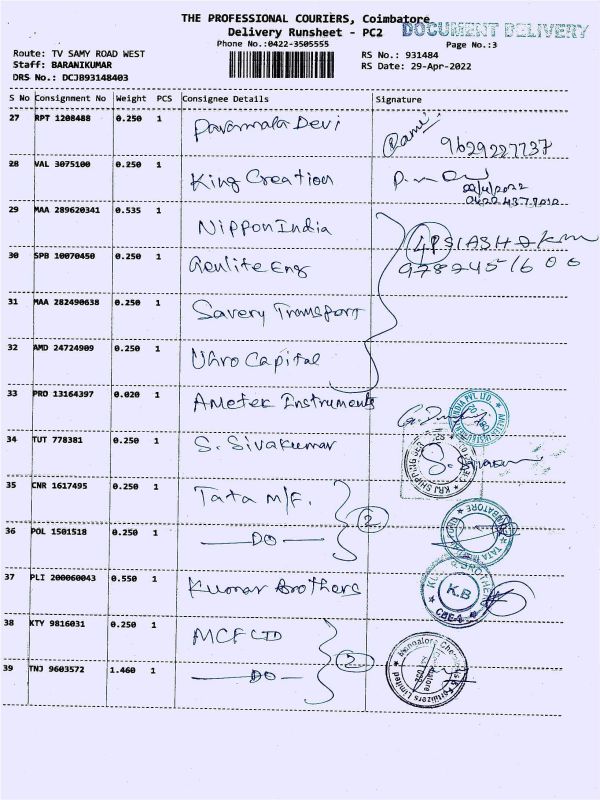 THE PROFESSIONAL COURIERS, Coimbatore
DOCUMENT DELIVERY
Delivery Runsheet - PC2
Phone No.:0422-3505555
Page No.:3
Route: TV SAMY ROAD WEST
RS No.: 931484
Staff: BARANIKUMAR
RS Date: 29-Apr-2022
DRS No.: DCJB93148403
S No Consignment No Weight PCS Consignee Details Signature
27 RPT 1208488 0.250 1 Pavanmala Devi
9629227737
28 VAL 3075100 0.250 1 King Creation
29 MAA 289620341 0.535 1 Nippon India
30 SPB 10070450 0.250 1
31 MAA 282490638 0.250 1 Savery Transport
32 AMD 24724909 0.250 1 Ugro Capital
33 PRO 13164397 0.020 1 Ametek Instruments
34 TUT 778381 0.250 1 S. Sivakumar
35 CNR 1617495 0.250 1 Tata M/F. 2
36 POL 1501518 0.250 1 —DO—
37 PLI 200060043 0.550 1 Kumar Brothers
K.B
38 KTY 9816031 0.250 1 MCF LTD 2
39 TNJ 9603572 1.460 1 —DO—